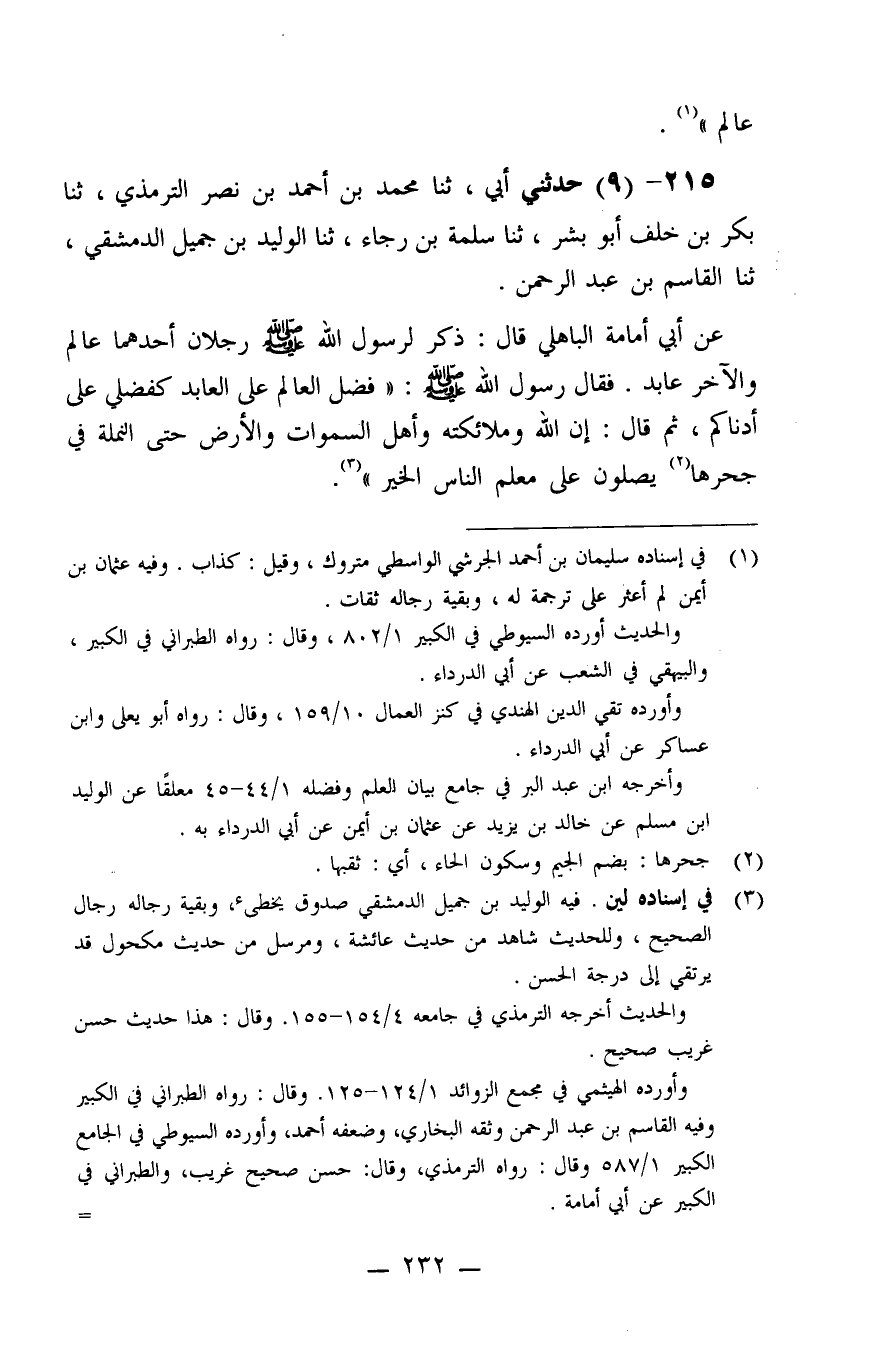 عالم »(١) .
٢١٥- (٩) حدثني أبي ، ثنا محمد بن أحمد بن نصر الترمذي ، ثنا
بكر بن خلف أبو بشر ، ثنا سلمة بن رجاء ، ثنا الوليد بن جميل الدمشقي ،
ثنا القاسم بن عبد الرحمن .
عن أبي أمامة الباهلي قال : ذكر لرسول الله ﷺ رجلان أحدهما عالم
والآخر عابد . فقال رسول الله ﷺ : « فضل العالم على العابد كفضلي على
أدناكم ، ثم قال : إن الله وملائكته وأهل السموات والأرض حتى النملة في
جحرها(٢) يصلون على معلم الناس الخير »(٣).
(١) في إسناده سليمان بن أحمد الجرشي الواسطي متروك ، وقيل : كذاب . وفيه عثمان بن
أيمن لم أعثر على ترجمة له ، وبقية رجاله ثقات .
والحديث أورده السيوطي في الكبير ٨٠٢/١ ، وقال : رواه الطبراني في الكبير ،
والبيهقي في الشعب عن أبي الدرداء .
وأورده تقي الدين الهندي في كنز العمال ١٥٩/١٠ ، وقال : رواه أبو يعلى وابن
عساكر عن أبي الدرداء .
وأخرجه ابن عبد البر في جامع بيان العلم وفضله ٤٤/١-٤٥ معلقًا عن الوليد
ابن مسلم عن خالد بن يزيد عن عثمان بن أيمن عن أبي الدرداء به .
(٢) جحرها : بضم الجيم وسكون الحاء ، أي : ثقبها .
(٣) في إسناده لين . فيه الوليد بن جميل الدمشقي صدوق يخطىء، وبقية رجاله رجال
الصحيح ، وللحديث شاهد من حديث عائشة ، ومرسل من حديث مكحول قد
يرتقي إلى درجة الحسن .
والحديث أخرجه الترمذي في جامعه ١٥٤/٤-١٥٥. وقال : هذا حديث حسن
غريب صحيح .
وأورده الهيثمي في مجمع الزوائد ١٢٤/١-١٢٥. وقال : رواه الطبراني في الكبير
وفيه القاسم بن عبد الرحمن وثقه البخاري، وضعفه أحمد، وأورده السيوطي في الجامع
الكبير ٥٨٧/١ وقال : رواه الترمذي، وقال: حسن صحيح غريب، والطبراني في
الكبير عن أبي أمامة . =
— ٢٣٢ —